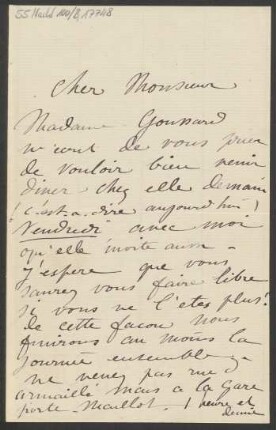 55 Nachl 100/B, 17748
Cher Monsieur
Madame Goussard
de vous prier
de vouloir bien venir
diner chez elle demain
(c'est-a-dire aujourd'hui)
Vendredi avec moi
qu'elle invite aussi -
J'espère que vous
saurez vous faire libre
si vous ne l'etes plus!
De cette facon nous
finirons au moins la
journée ensemble -
ne venez pas rue d'
armaillé mais a la Gare
porte-Maillot. 1 heure et
demie